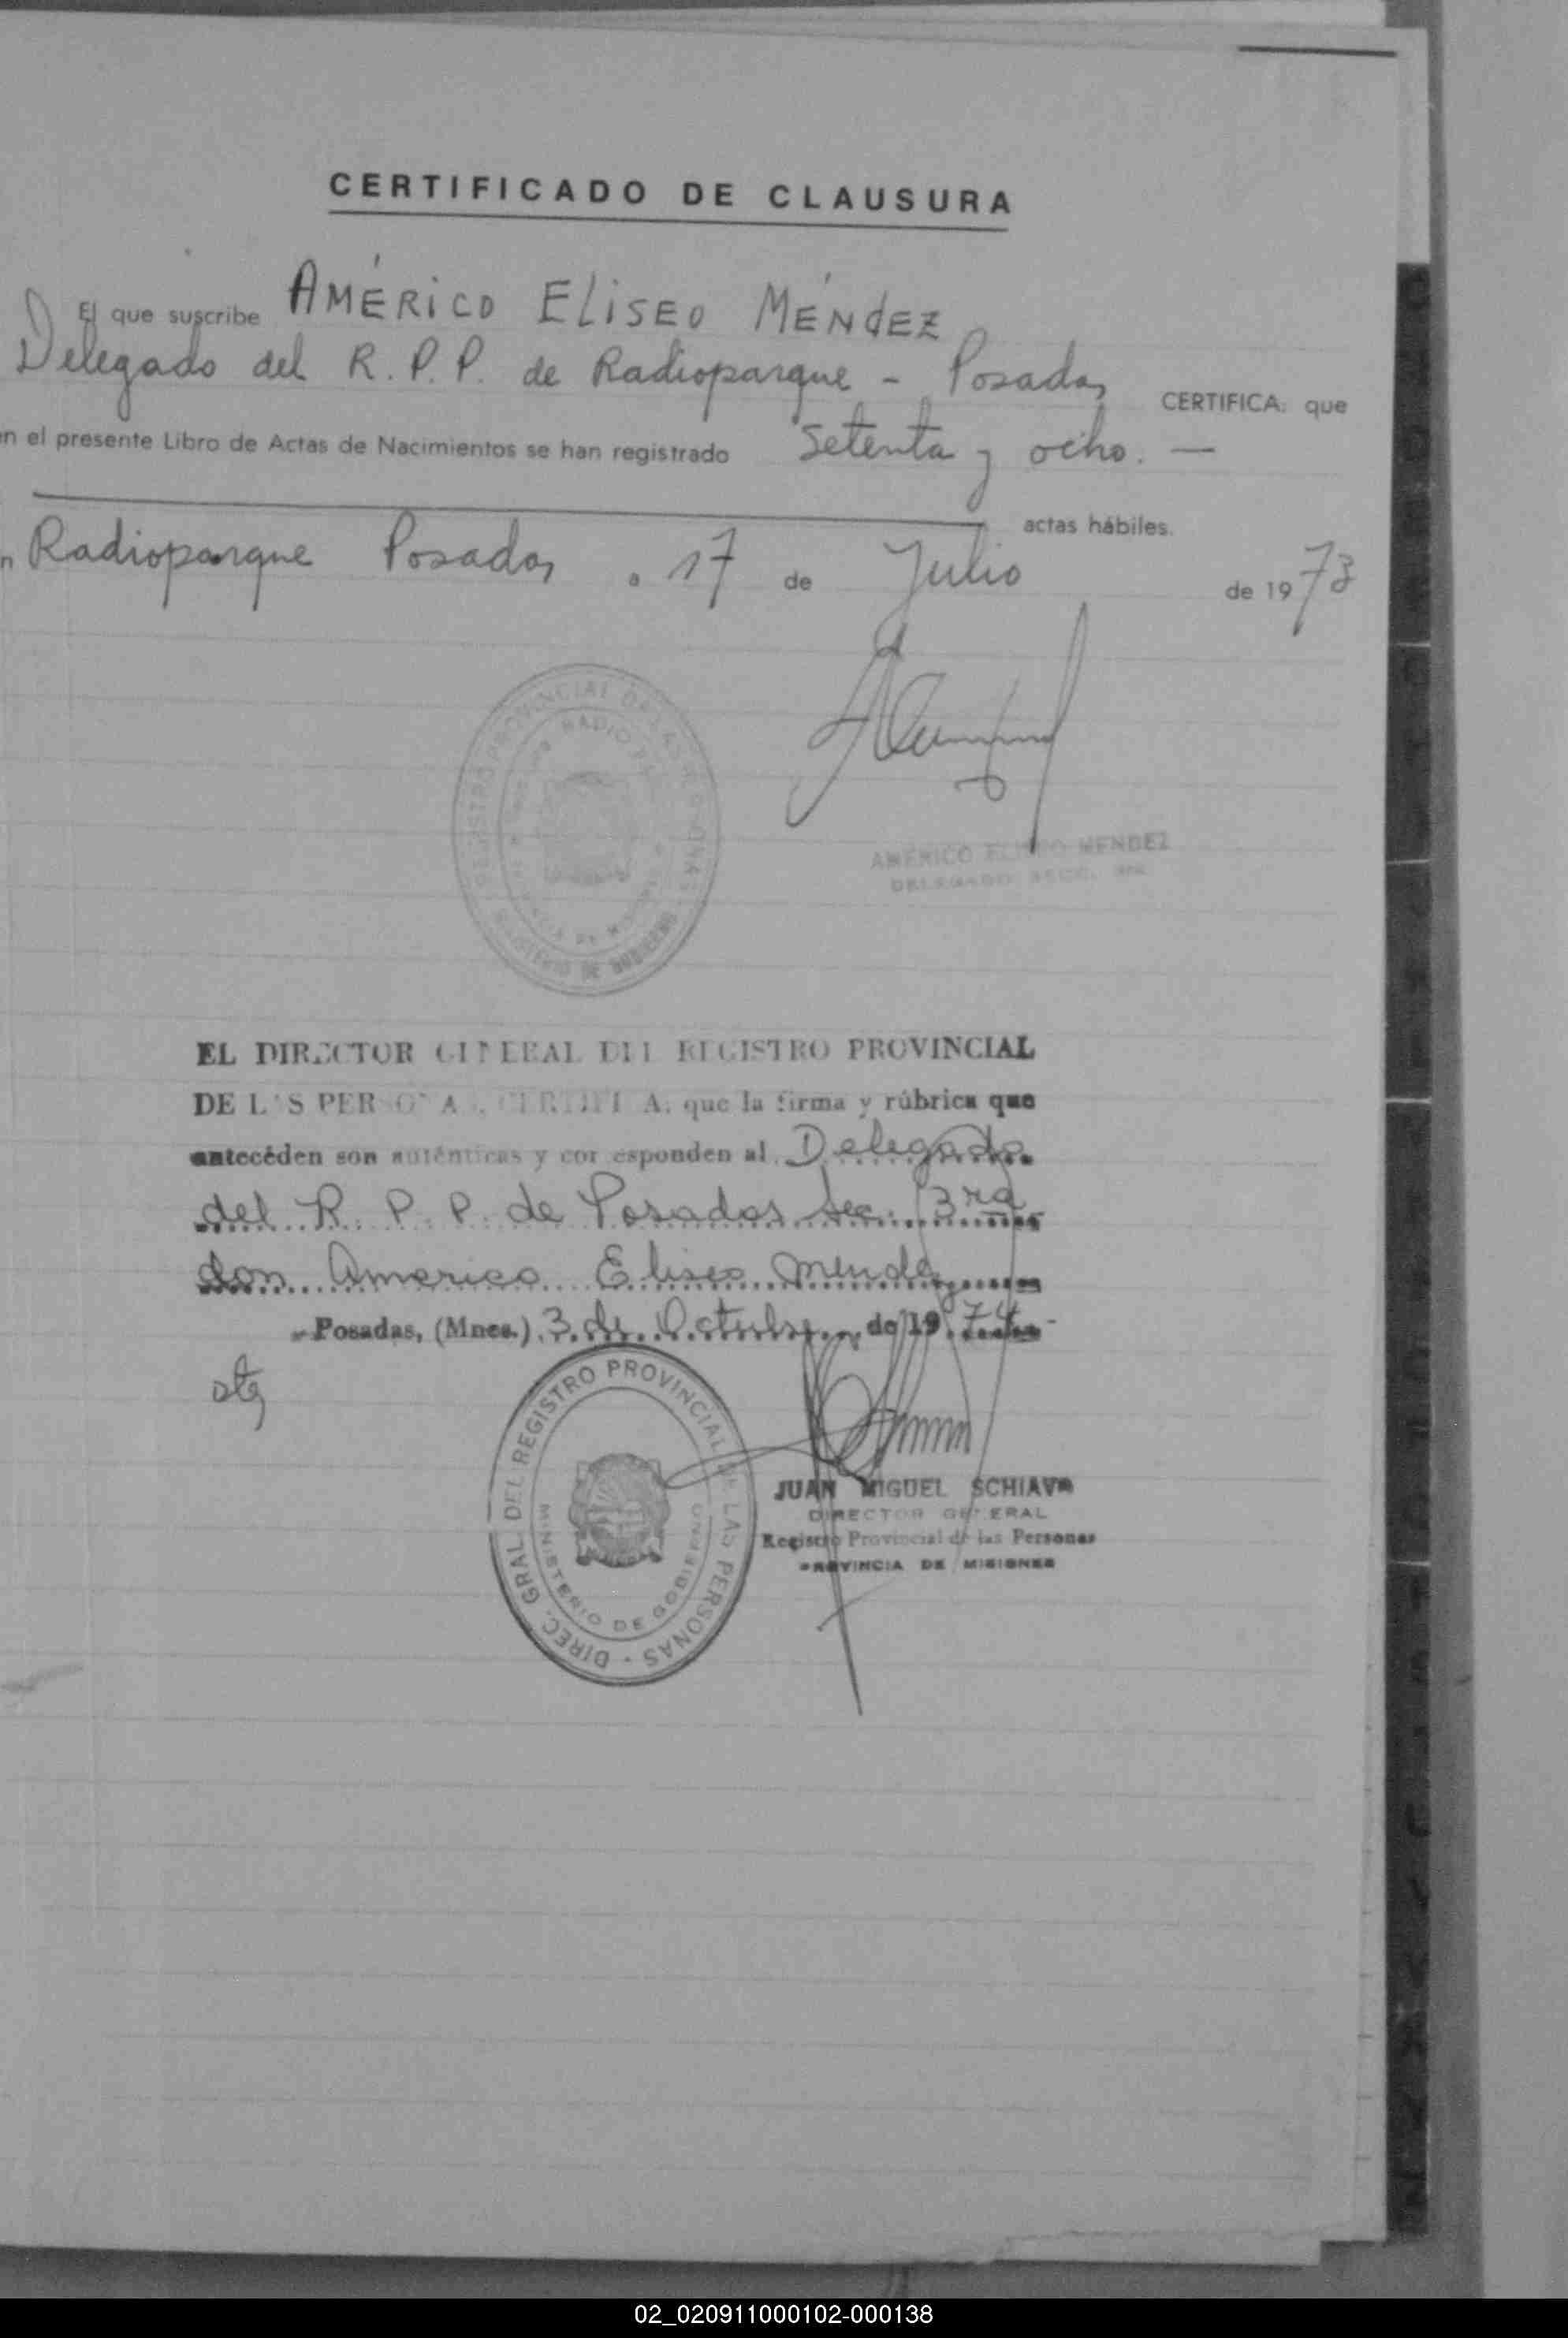 CERTIFICADO DE CLAUSURA
El que suscribe AMÉRICO ELISEO MÉNDEZ
Delegado del R.P.P. de Radioparque - Posadas CERTIFICA: que
n el presente Libro de Actas de Nacimientos se han registrado setenta y ocho. —
actas hábiles.
n Radioparque Posadas a 17 de Julio de 1973
PROVINCIAL DE LAS
RADIO
MINISTERIO DE GOBIERNO
AMÉRICO ELISEO MENDEZ
DELEGADO SECC.
EL DIRECTOR GENERAL DEL REGISTRO PROVINCIAL
DE LAS PERSONAS, CERTIFICA: que la firma y rúbrica que
antecéden son auténticas y corresponden al Delegado
del R. P. P. de Posadas Sec. 3ra
don Americo Eliseo Mendez
Posadas, (Mnes.) 3 de Octubre de 1974
DIREC. GRAL. DEL REGISTRO PROVINCIAL DE LAS PERSONAS
MINISTERIO DE GOBIERNO
JUAN MIGUEL SCHIAVO
DIRECTOR GENERAL
Registro Provincial de las Personas
PROVINCIA DE MISIONES
02_020911000102-000138